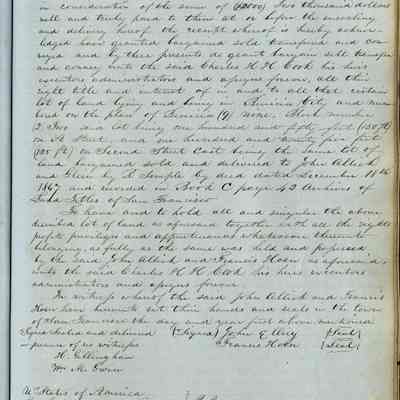 in consideration of the sum of ($2000) Two thousand dollars
well and truly paid to them at or before the ensealing
and delivery hereof the receipt whereof is hereby acknow
ledged have granted bargained sold transferred and con
veyed and by these presents do grant bargain sell transfer
and convey unto the said Charles H. H. Cook his heirs
executors administrators and assigns forever, all their
right title and interest of in and to all that certain
lot of land lying and being in Benicia City and num
bered on the plan of Benicia (9) nine. Block number
2 Two said lot being one hundred and fifty feet (150 ft)
on Street and one hundred and twenty five feet
(125 ft) on Second Street East being the same lot of
land bargained sold and delivered to John Allick
and by L Semple by deed dated December 18th
1847 and recorded in Book C page 43 Archives of
Land Titles of San Francisco
To have and to hold all and singular the above
described lot of land as aforesaid together with all the rights
profits privileges and appurtenances whatsoever thereunto
belonging, as fully as the same was held and possessed
by the said John Allick and Francis Hoen as aforesaid
unto the said Charles H H Cook his heirs executors
administrators and assigns forever
In witness whereof the said John Allick and Francis
Hoen have hereunto set their hands and seals in the town
of San Francisco the day and year first above mentioned
Signed Sealed and delivered (Signed) John Allig (Seal)
in presence of us witnesses Francis Hoen (Seal)
H. Ellingham
Wm. McEwen
U. States of America